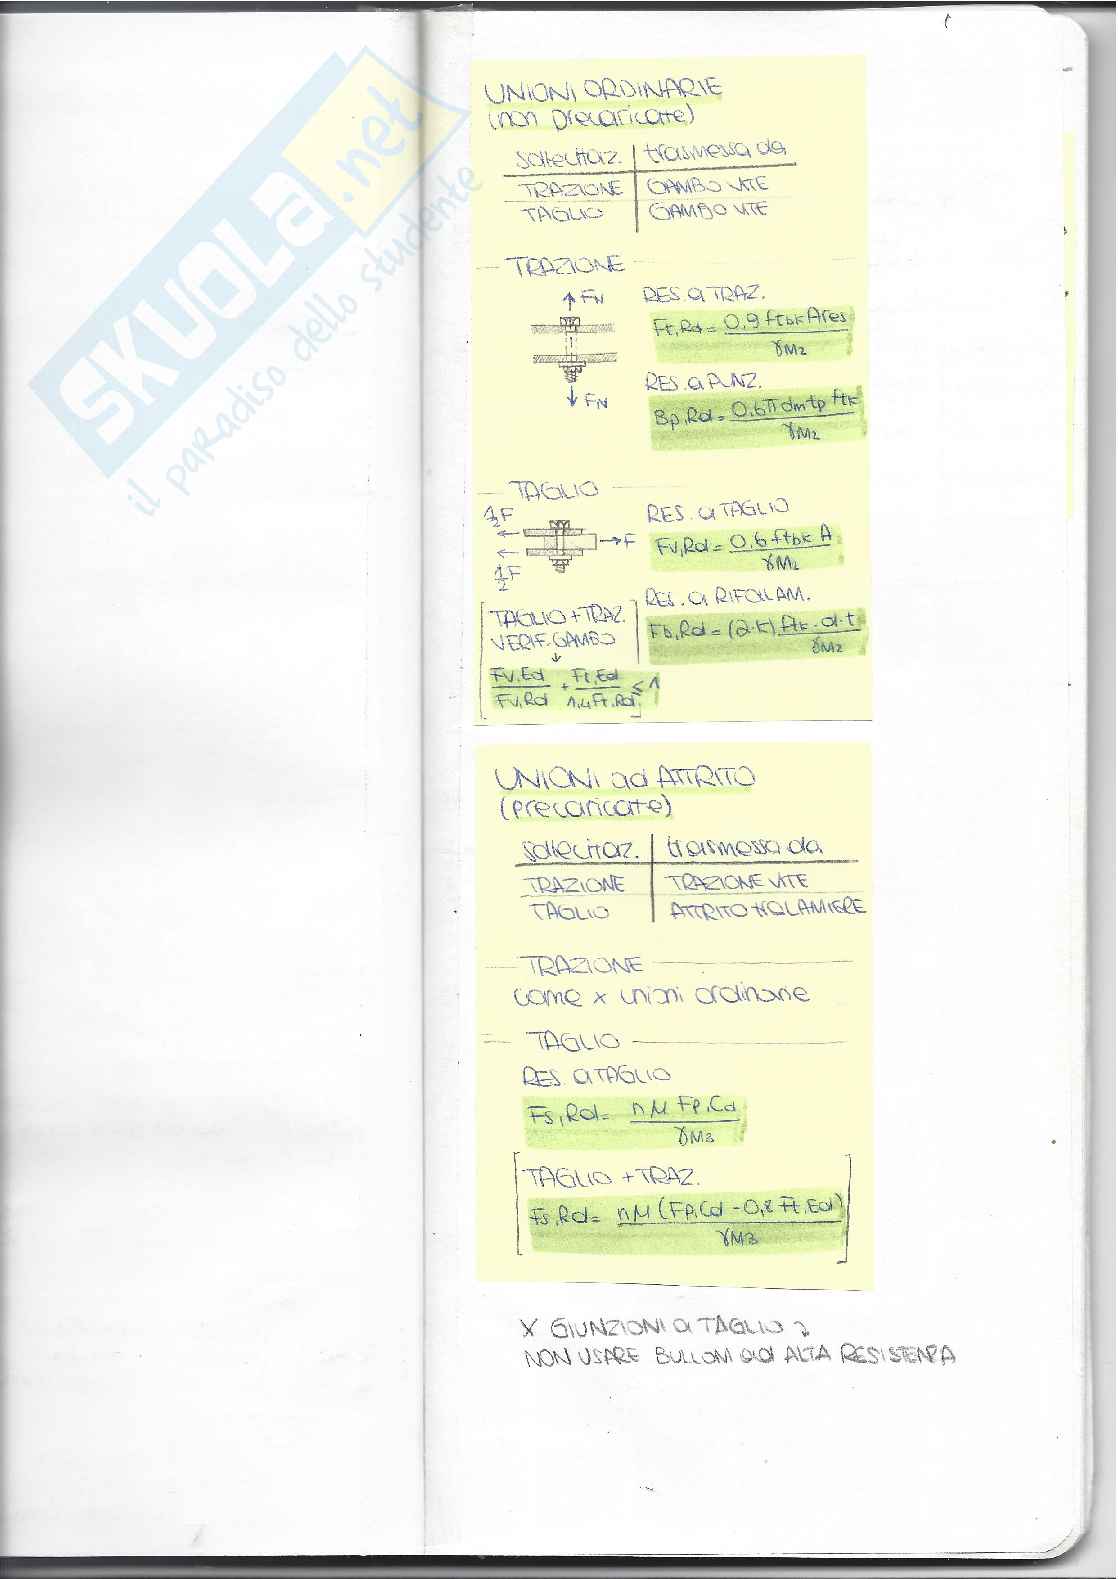 SKUOLA.net
il paradiso dello studente
UNIONI ORDINARIE
(non precaricate)
sollecitaz. | trasmessa da
TRAZIONE | GAMBO VITE
TAGLIO | GAMBO VITE
TRAZIONE
FN
RES. a TRAZ.
Ft,Rd = 0,9 ftbk Ares / γM2
RES. a PUNZ.
Bp,Rd = 0,6 π dm tp ftk / γM2
FN
TAGLIO
1/2 F
F
1/2 F
RES. a TAGLIO
Fv,Rd = 0,6 ftbk A / γM2
RES. a RIFOLLAM.
Fb,Rd = (α·k) ftk · d · t / γM2
TAGLIO + TRAZ.
VERIF. GAMBO
Fv,Ed / Fv,Rd + Ft,Ed / 1,4 Ft,Rd ≤ 1
UNIONI ad ATTRITO
(precaricate)
sollecitaz. | trasmessa da
TRAZIONE | TRAZIONE VITE
TAGLIO | ATTRITO tra LAMIERE
TRAZIONE
come x unioni ordinarie
TAGLIO
RES. a TAGLIO
Fs,Rd = n μ Fp,Cd / γM3
TAGLIO + TRAZ.
Fs,Rd = n μ (Fp,Cd - 0,8 Ft,Ed) / γM3
X GIUNZIONI a TAGLIO
NON USARE BULLONI ad ALTA RESISTENZA